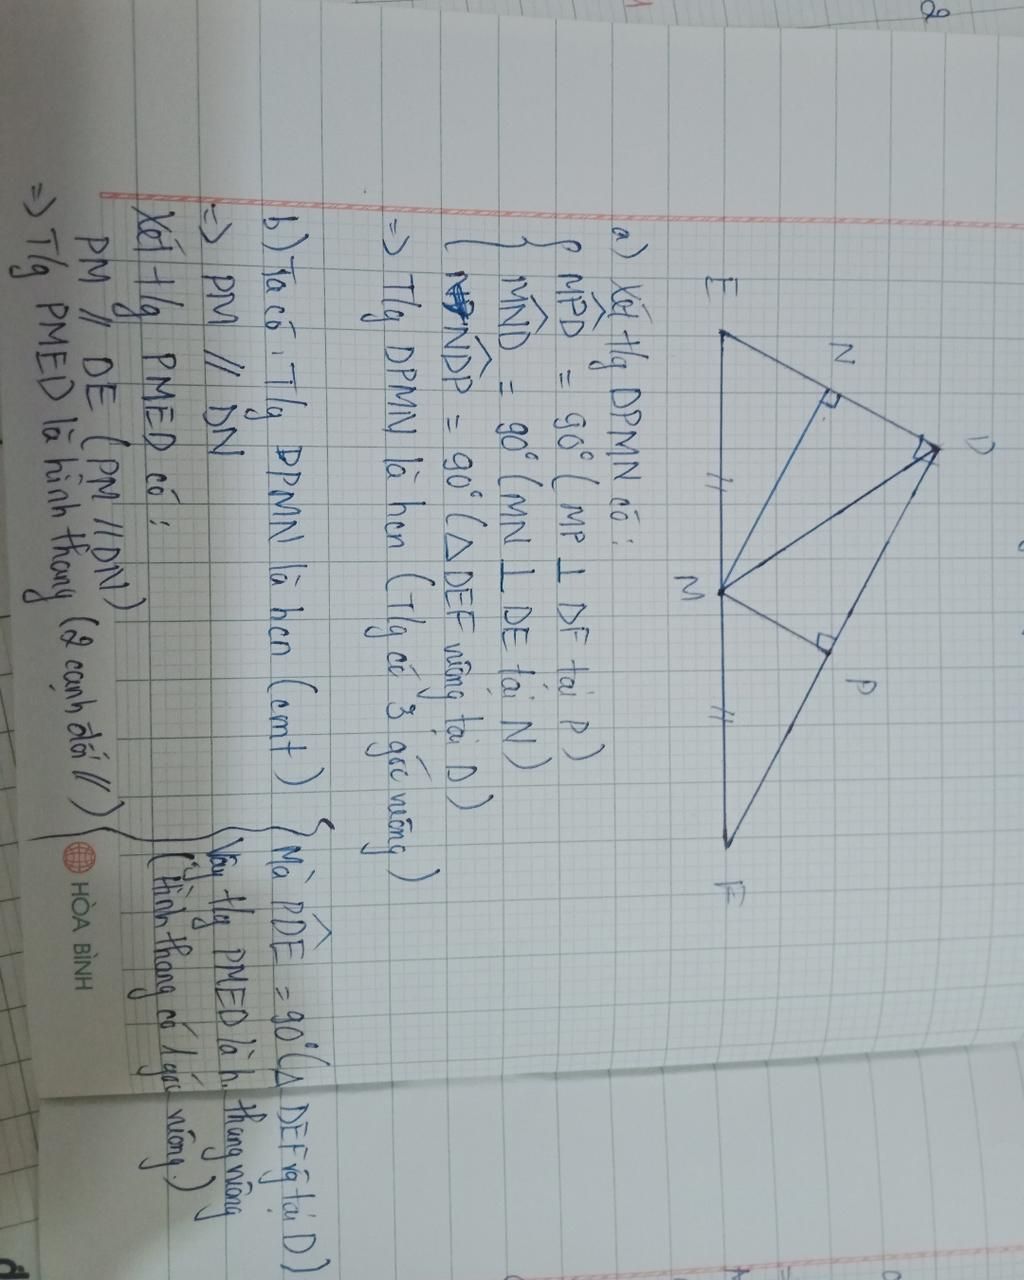 D
N
P
E
M
F
a) Xét t/g DPMN có:
MPD = 90° (MP ⊥ DF tại P)
MND = 90° (MN ⊥ DE tại N)
NDP = 90° (△ DEF vuông tại D)
=> T/g DPMN là hcn (T/g có 3 góc vuông)
b) Ta có: T/g DPMN là hcn (cmt)
=> PM // DN
Xét t/g PMED có:
PM // DE (PM // DN)
=> T/g PMED là hình thang (2 cạnh đối //)
Mà PDE = 90° (△ DEF vg tại D)
Vậy t/g PMED là h. thang vuông
(Hình thang có 1 góc vuông.)
HÒA BÌNH